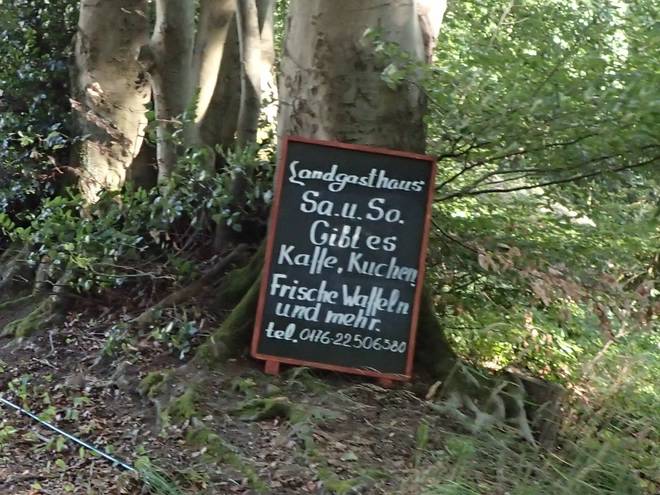 Landgasthaus
Sa. u. So.
Gibt es
Kaffe, Kuchen
Frische Waffeln
und mehr.
tel. 0176-22506580